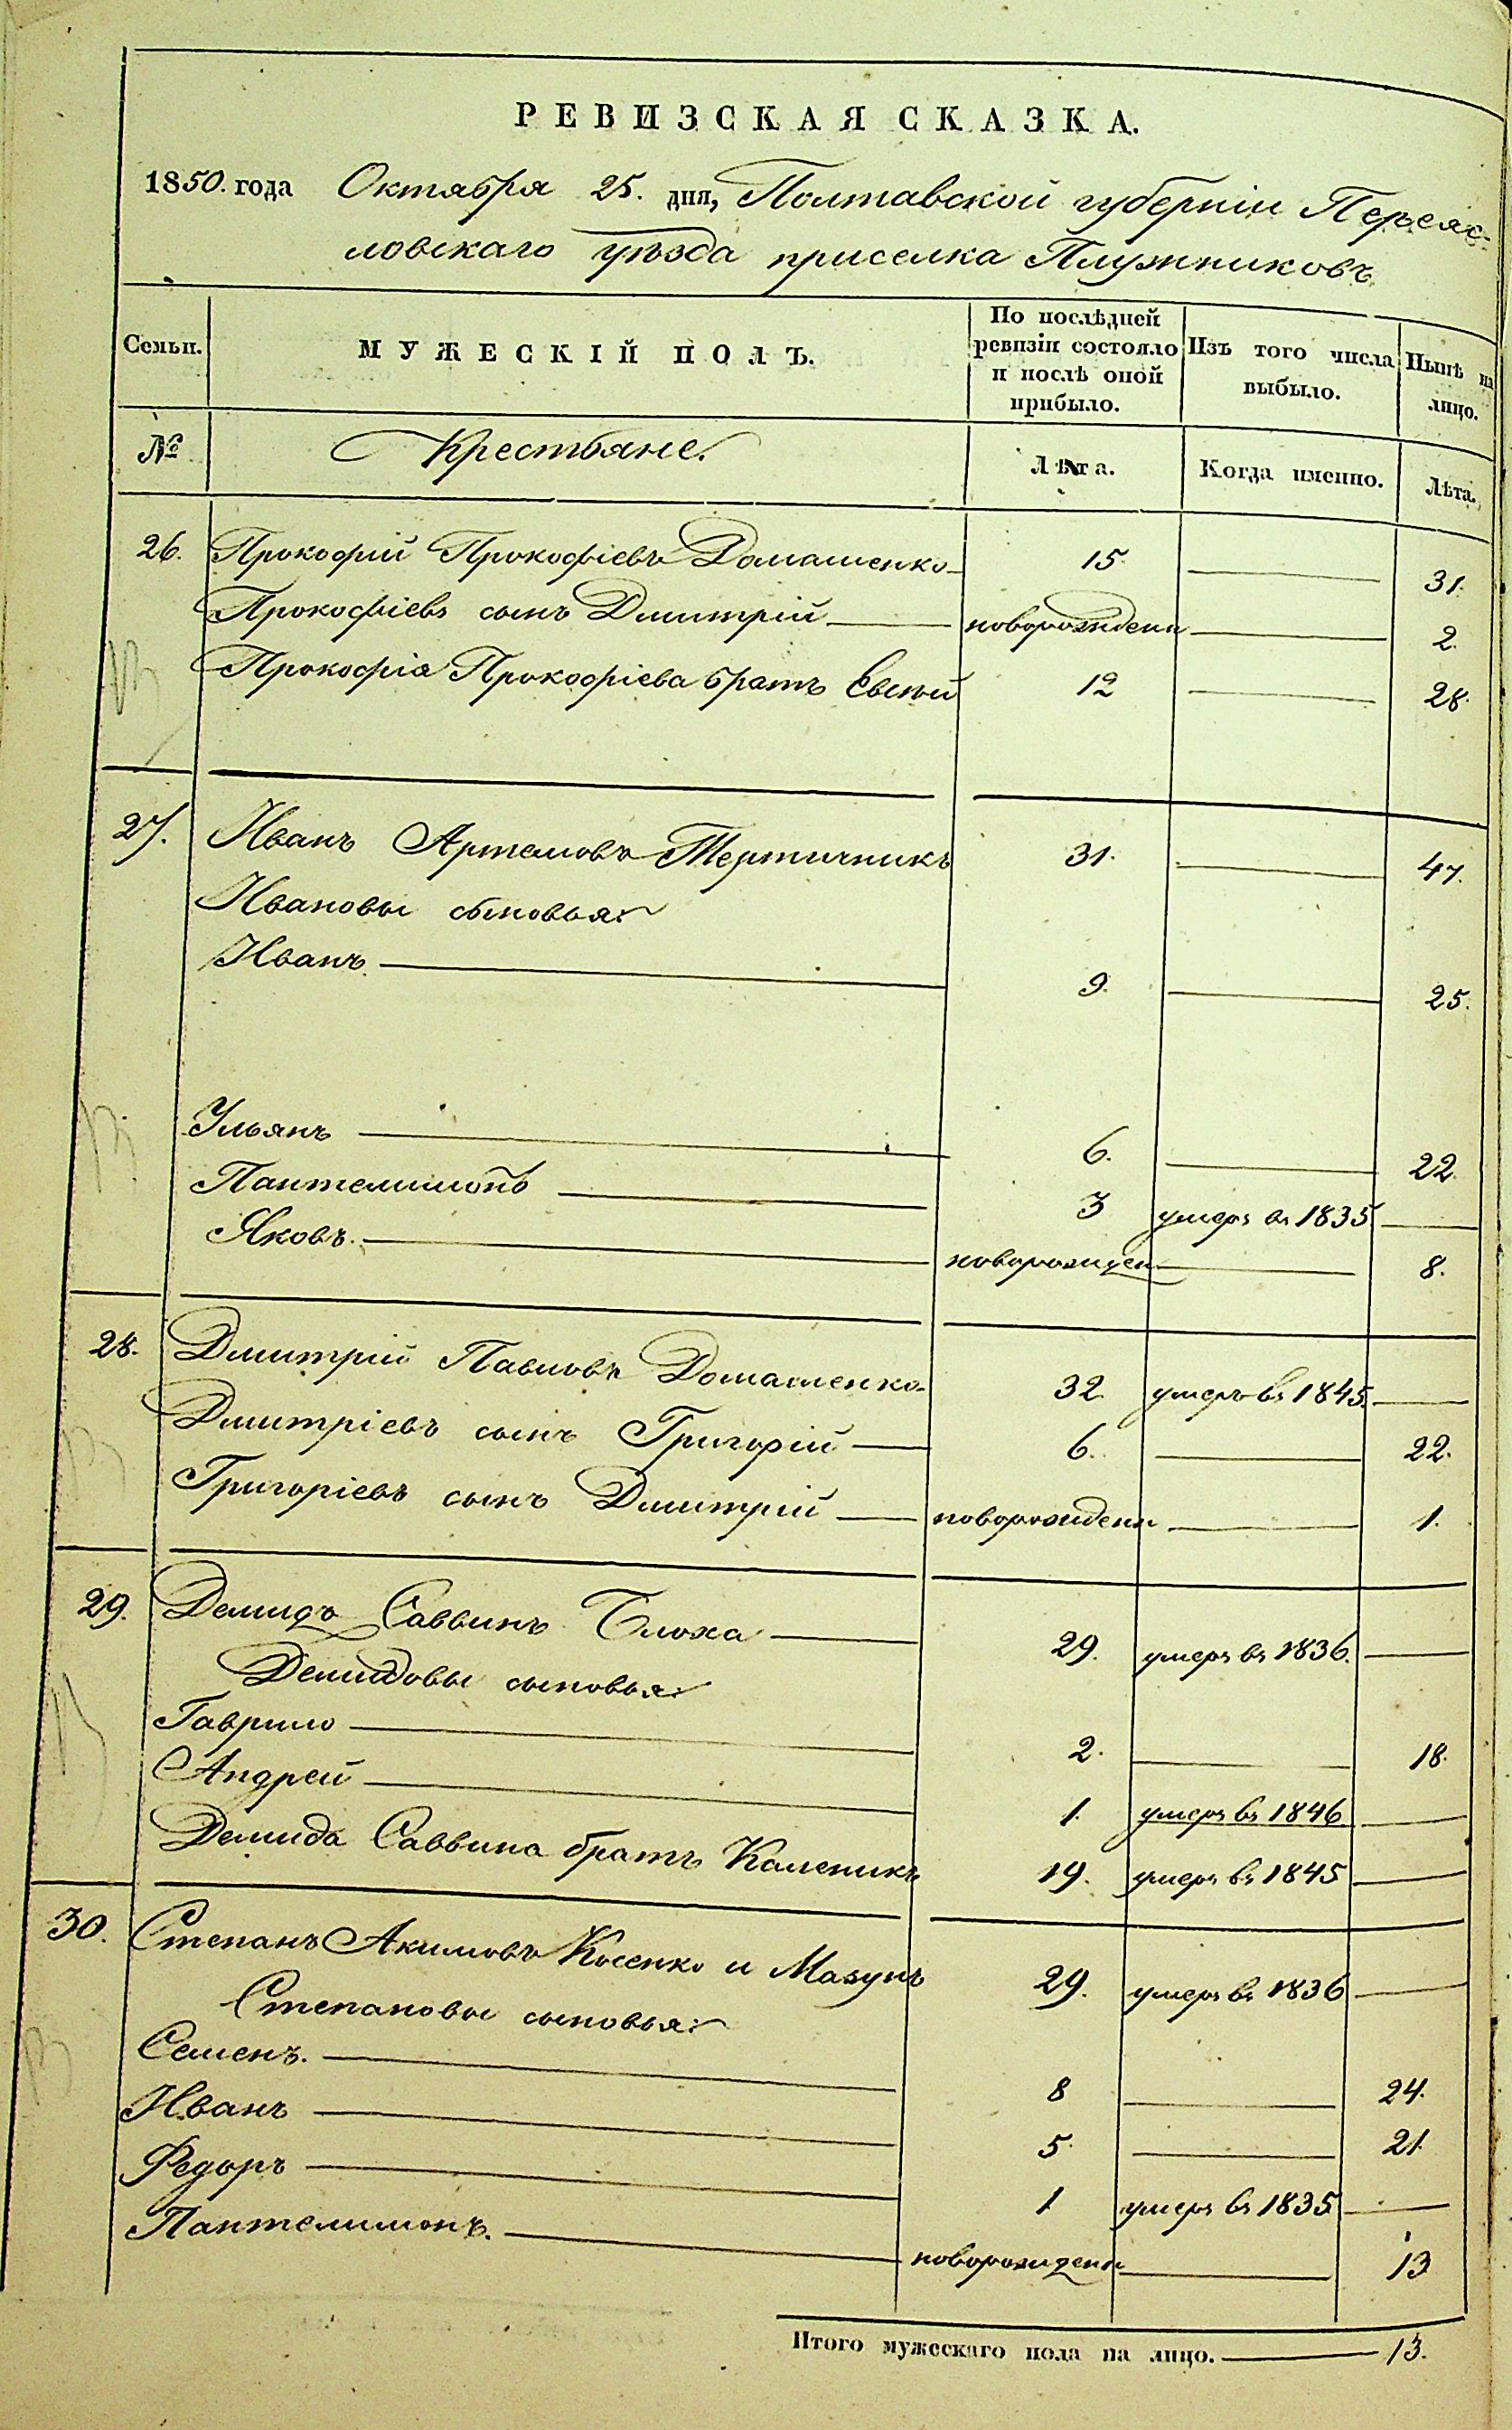 РЕВИЗСКАЯ СКАЗКА.
1850. года Октября 25. дня, Полтавской губерніи Переяс-
ловскаго уѣзда приселка Плужниковъ
Семьи. МУЖЕСКІЙ ПОЛЪ. По послѣдней ревизіи состояло и послѣ оной прибыло. Изъ того числа выбыло. Нынѣ на лицо.
№ Крестьяне. Лѣта. Когда именно. Лѣта.
26. Прокофій Прокофіевъ Домашенко 15 31.
Прокофіевъ сынъ Дмитрій новорожденн 2.
Прокофія Прокофіева братъ 12 28.
27. Иванъ Артемовъ Тертичникъ 31. 47.
Ивановы сыновья:
Иванъ 9. 25.
Ульянъ 6. 22.
Пантелимонъ 3 умеръ въ 1835
Яковъ. новорожден 8.
28. Дмитрій Павловъ Домашенко 32. умеръ въ 1845.
Дмитріевъ сынъ Григорій 6. 22.
Григоріевъ сынъ Дмитрій новорожденн 1.
29. Демидъ Саввинъ Блоха 29. умеръ въ 1836.
Демидовы сыновья:
Гаврило 2. 18.
Андрей 1. умеръ въ 1846
Демида Саввина братъ Каленикъ 19. умеръ въ 1845
30. Степанъ Акимовъ Косенко и Мазунъ 29. умеръ въ 1836
Степановы сыновья:
Семенъ. 8 24.
Иванъ 5. 21.
Федоръ 1 умеръ въ 1835
Пантелимонъ. новорожденн 13
Итого мужескаго пола на лицо. 13.